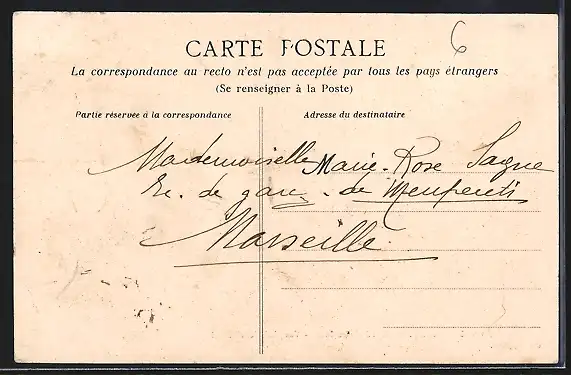 6
CARTE POSTALE
La correspondance au recto n'est pas acceptée par tous les pays étrangers
(Se renseigner à la Poste)
Partie réservée à la correspondance
Adresse du destinataire
Mademoiselle Marie-Rose Sagne
de gare de Menpenti
Marseille